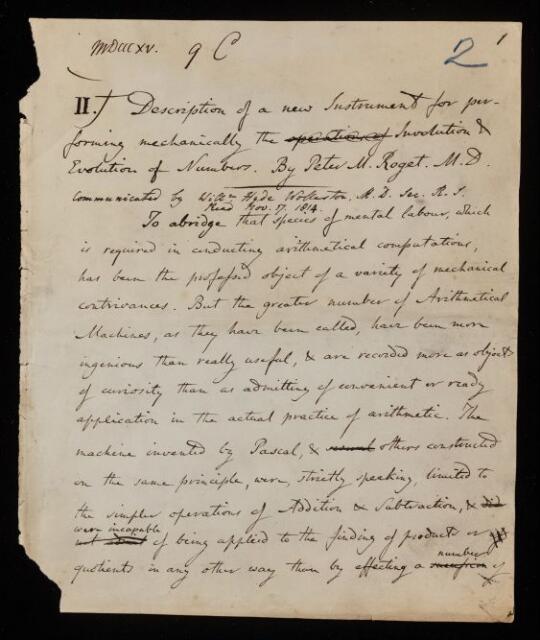 MDCCCXV. 9 C 2 1
II. Description of a new Instrument for per-
forming mechanically the operations of Involution &
Evolution of Numbers. By Peter M. Roget. M.D.
Communicated by Willm Hyde Wollaston, M.D. Sec. R.S.
Read Nov. 17. 1814.
To abridge that species of mental labour, which
is required in conducting arithmetical computations,
has been the professed object of a variety of mechanical
contrivances. But the greater number of Arithmetical
Machines, as they have been called, have been more
ingenious than really useful, & are recorded more as objects
of curiosity than as admitting of convenient or ready
application in the actual practice of arithmetic. The
machine invented by Pascal, & several others constructed
on the same principle, were, strictly speaking, limited to
the simpler operations of Addition & Subtraction, & did
were incapable
not admit of being applied to the finding of products or
number
quotients in any other way than by effecting a of